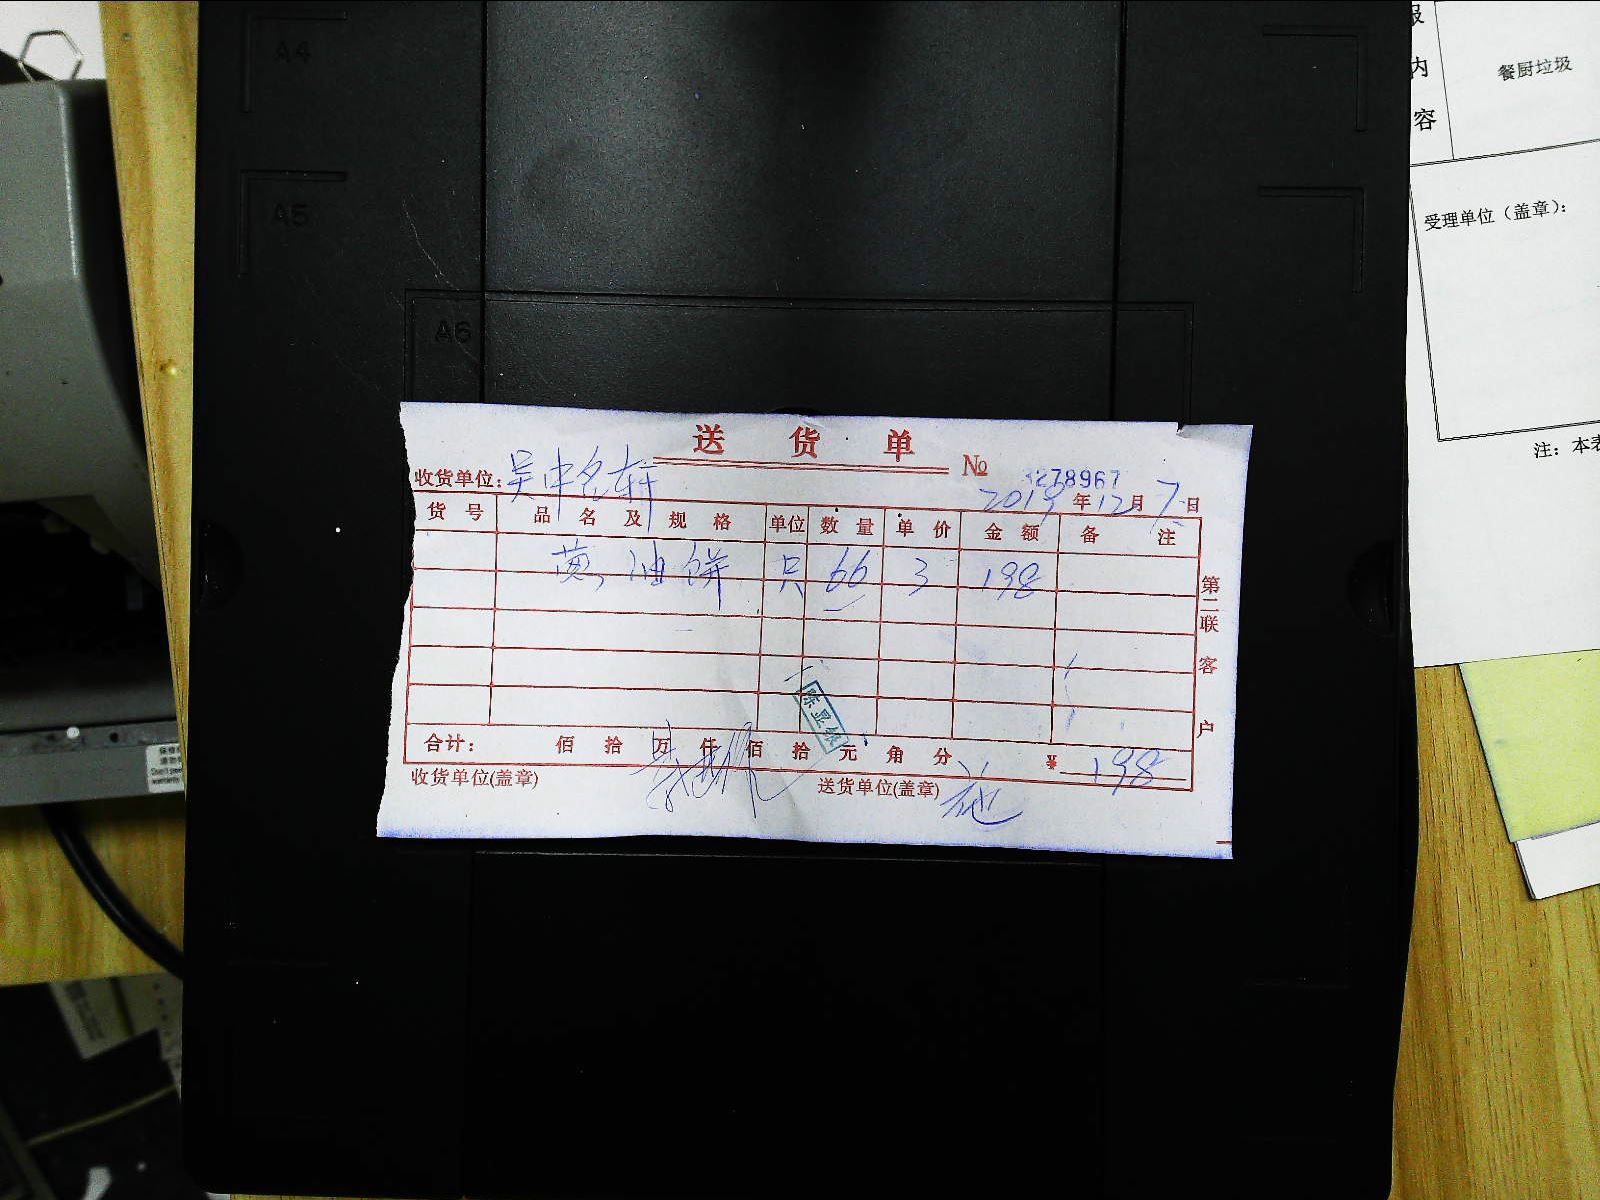 A4
A5
A6
报
内
容
餐厨垃圾
受理单位（盖章）：
注：本表
送 货 单
№ 3278967
收货单位：吴中名轩
2019年12月7日
货号 品名及规格 单位 数量 单价 金额 备注
葱油饼 只 66 3 198
第二联 客户
合计： 佰 拾 万 仟 佰 拾 元 角 分 ¥ 198
收货单位(盖章) 送货单位(盖章)